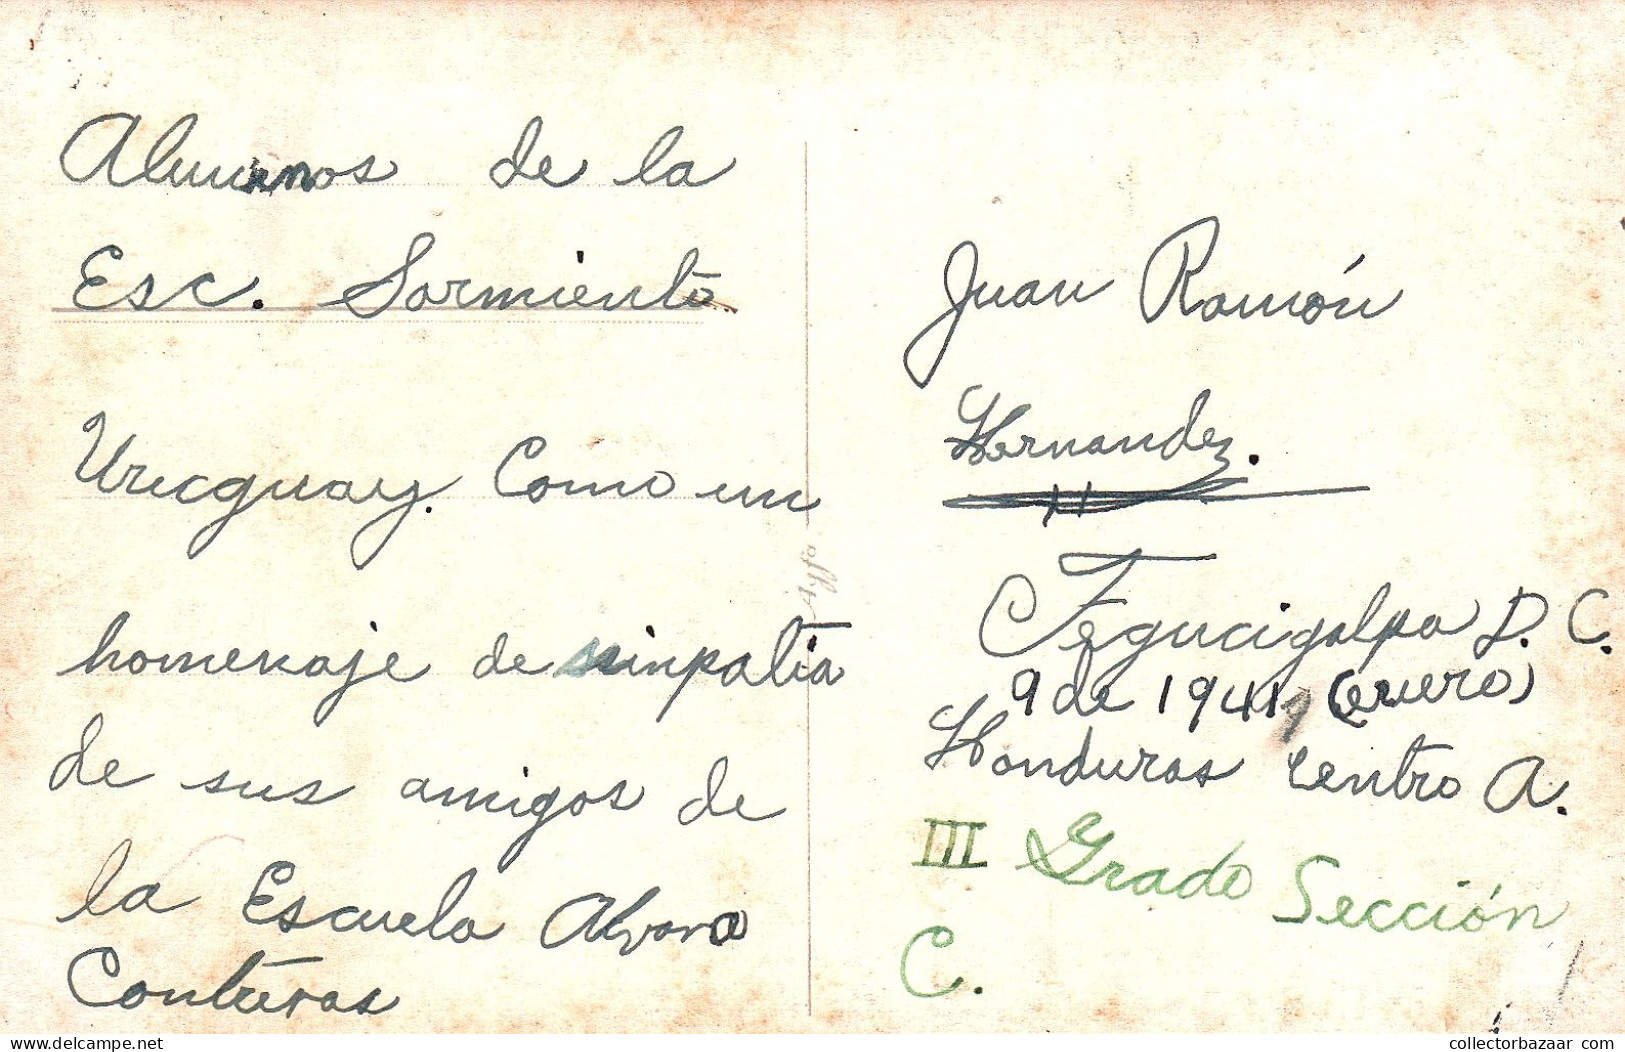 Alumnos de la
Esc. Sarmiento
Uruguay. Como un
homenaje de simpatia
de sus amigos de
la Escuela Alvaro
Contreras
Juan Ramón
Hernandez.
Tegucigalpa D. C.
9 de 1941 (enero)
Honduras Centro A.
III Grado Sección
C.
collectorbazaar.com